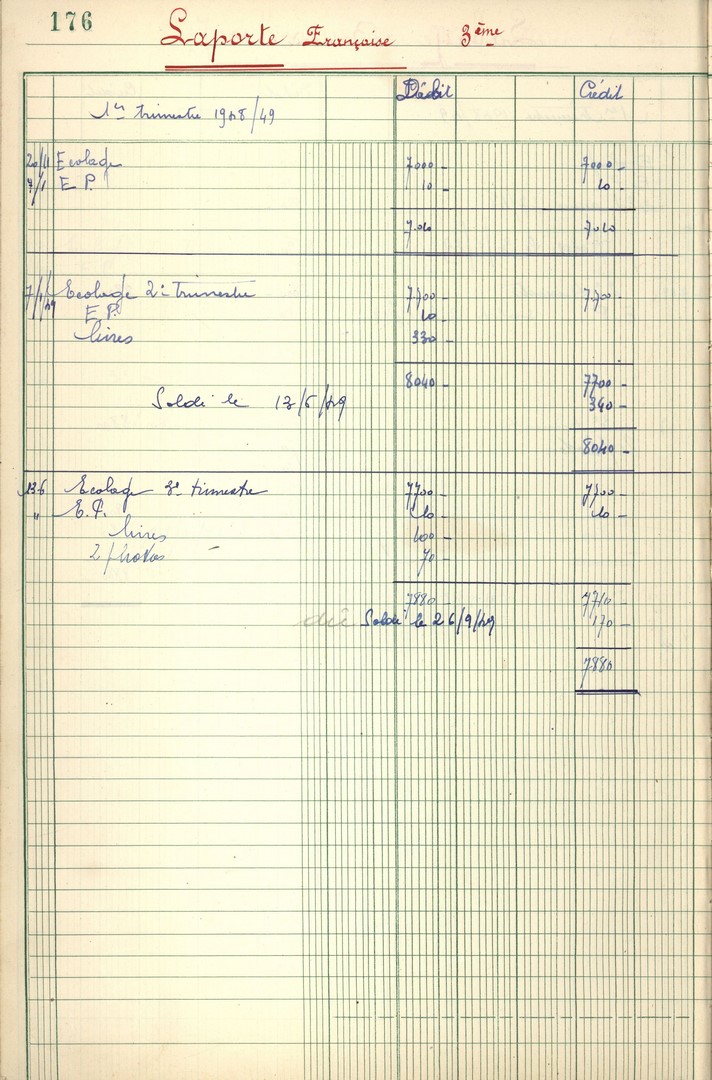 176
Laporte Françoise 3ème
Débit Crédit
1er trimestre 1948/49
20/11 Ecolage 7000 - 7000 -
7/1 E P. 10 - 10 -
7.010 7010
7/1/49 Ecolage 2e trimestre 7.700 - 7.700 -
E P. 10 -
livres 330 -
8040 - 7700 -
Soldé le 13/6/49 340 -
8040 -
13.6 Ecolage 3e trimestre 7700 - 7700 -
" E.P. 10 - 10 -
livres 100 -
2 photos - 70 -
7880 7710 -
dû Soldé le 26/9/49 170 -
7.880